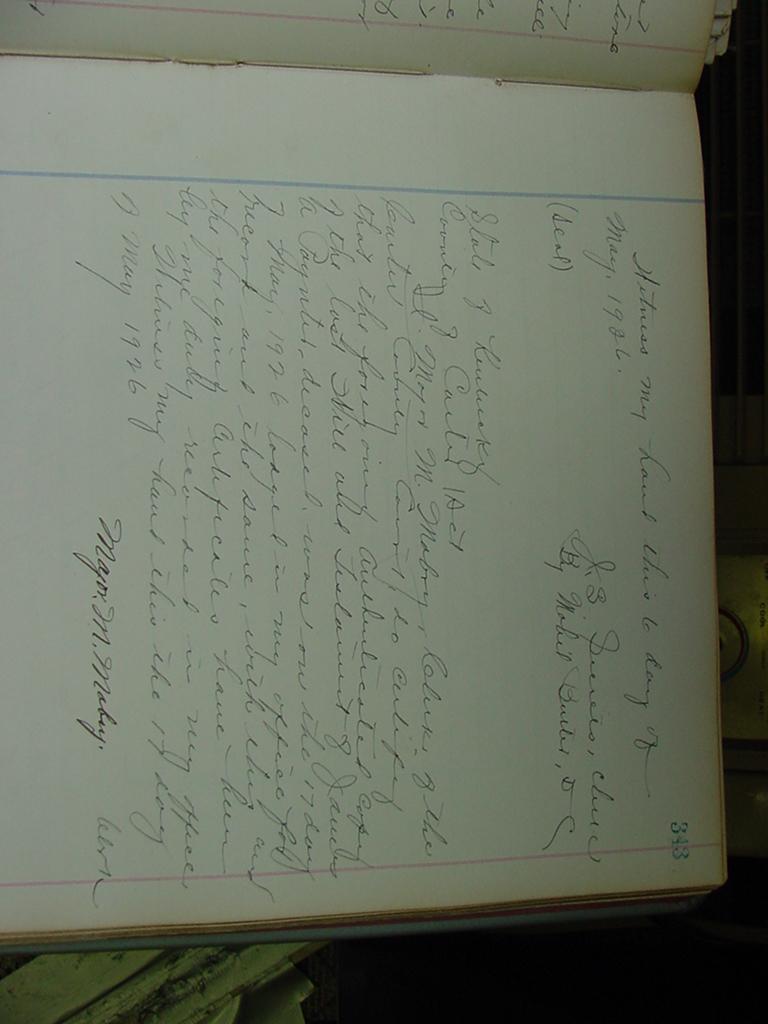 343
Witness my hand this 6 day of
May, 1926.
J. B. clerk
(Seal) By Butler, D C
State of Kentucky
County of Carter Sct
I, Major M. Mabry, Clerk of the
Carter County Court, do certify
that the foregoing authenticated copy
of the last Will and Testament of James
A Paynter, deceased, was on the 17 day
of May, 1926 lodged in my office for
record and the same, with this and
the foregoing certificates have been
by me duly recorded in my office
Witness my hand this the 17 day
of May 1926
Major. M. Mabry. Clerk